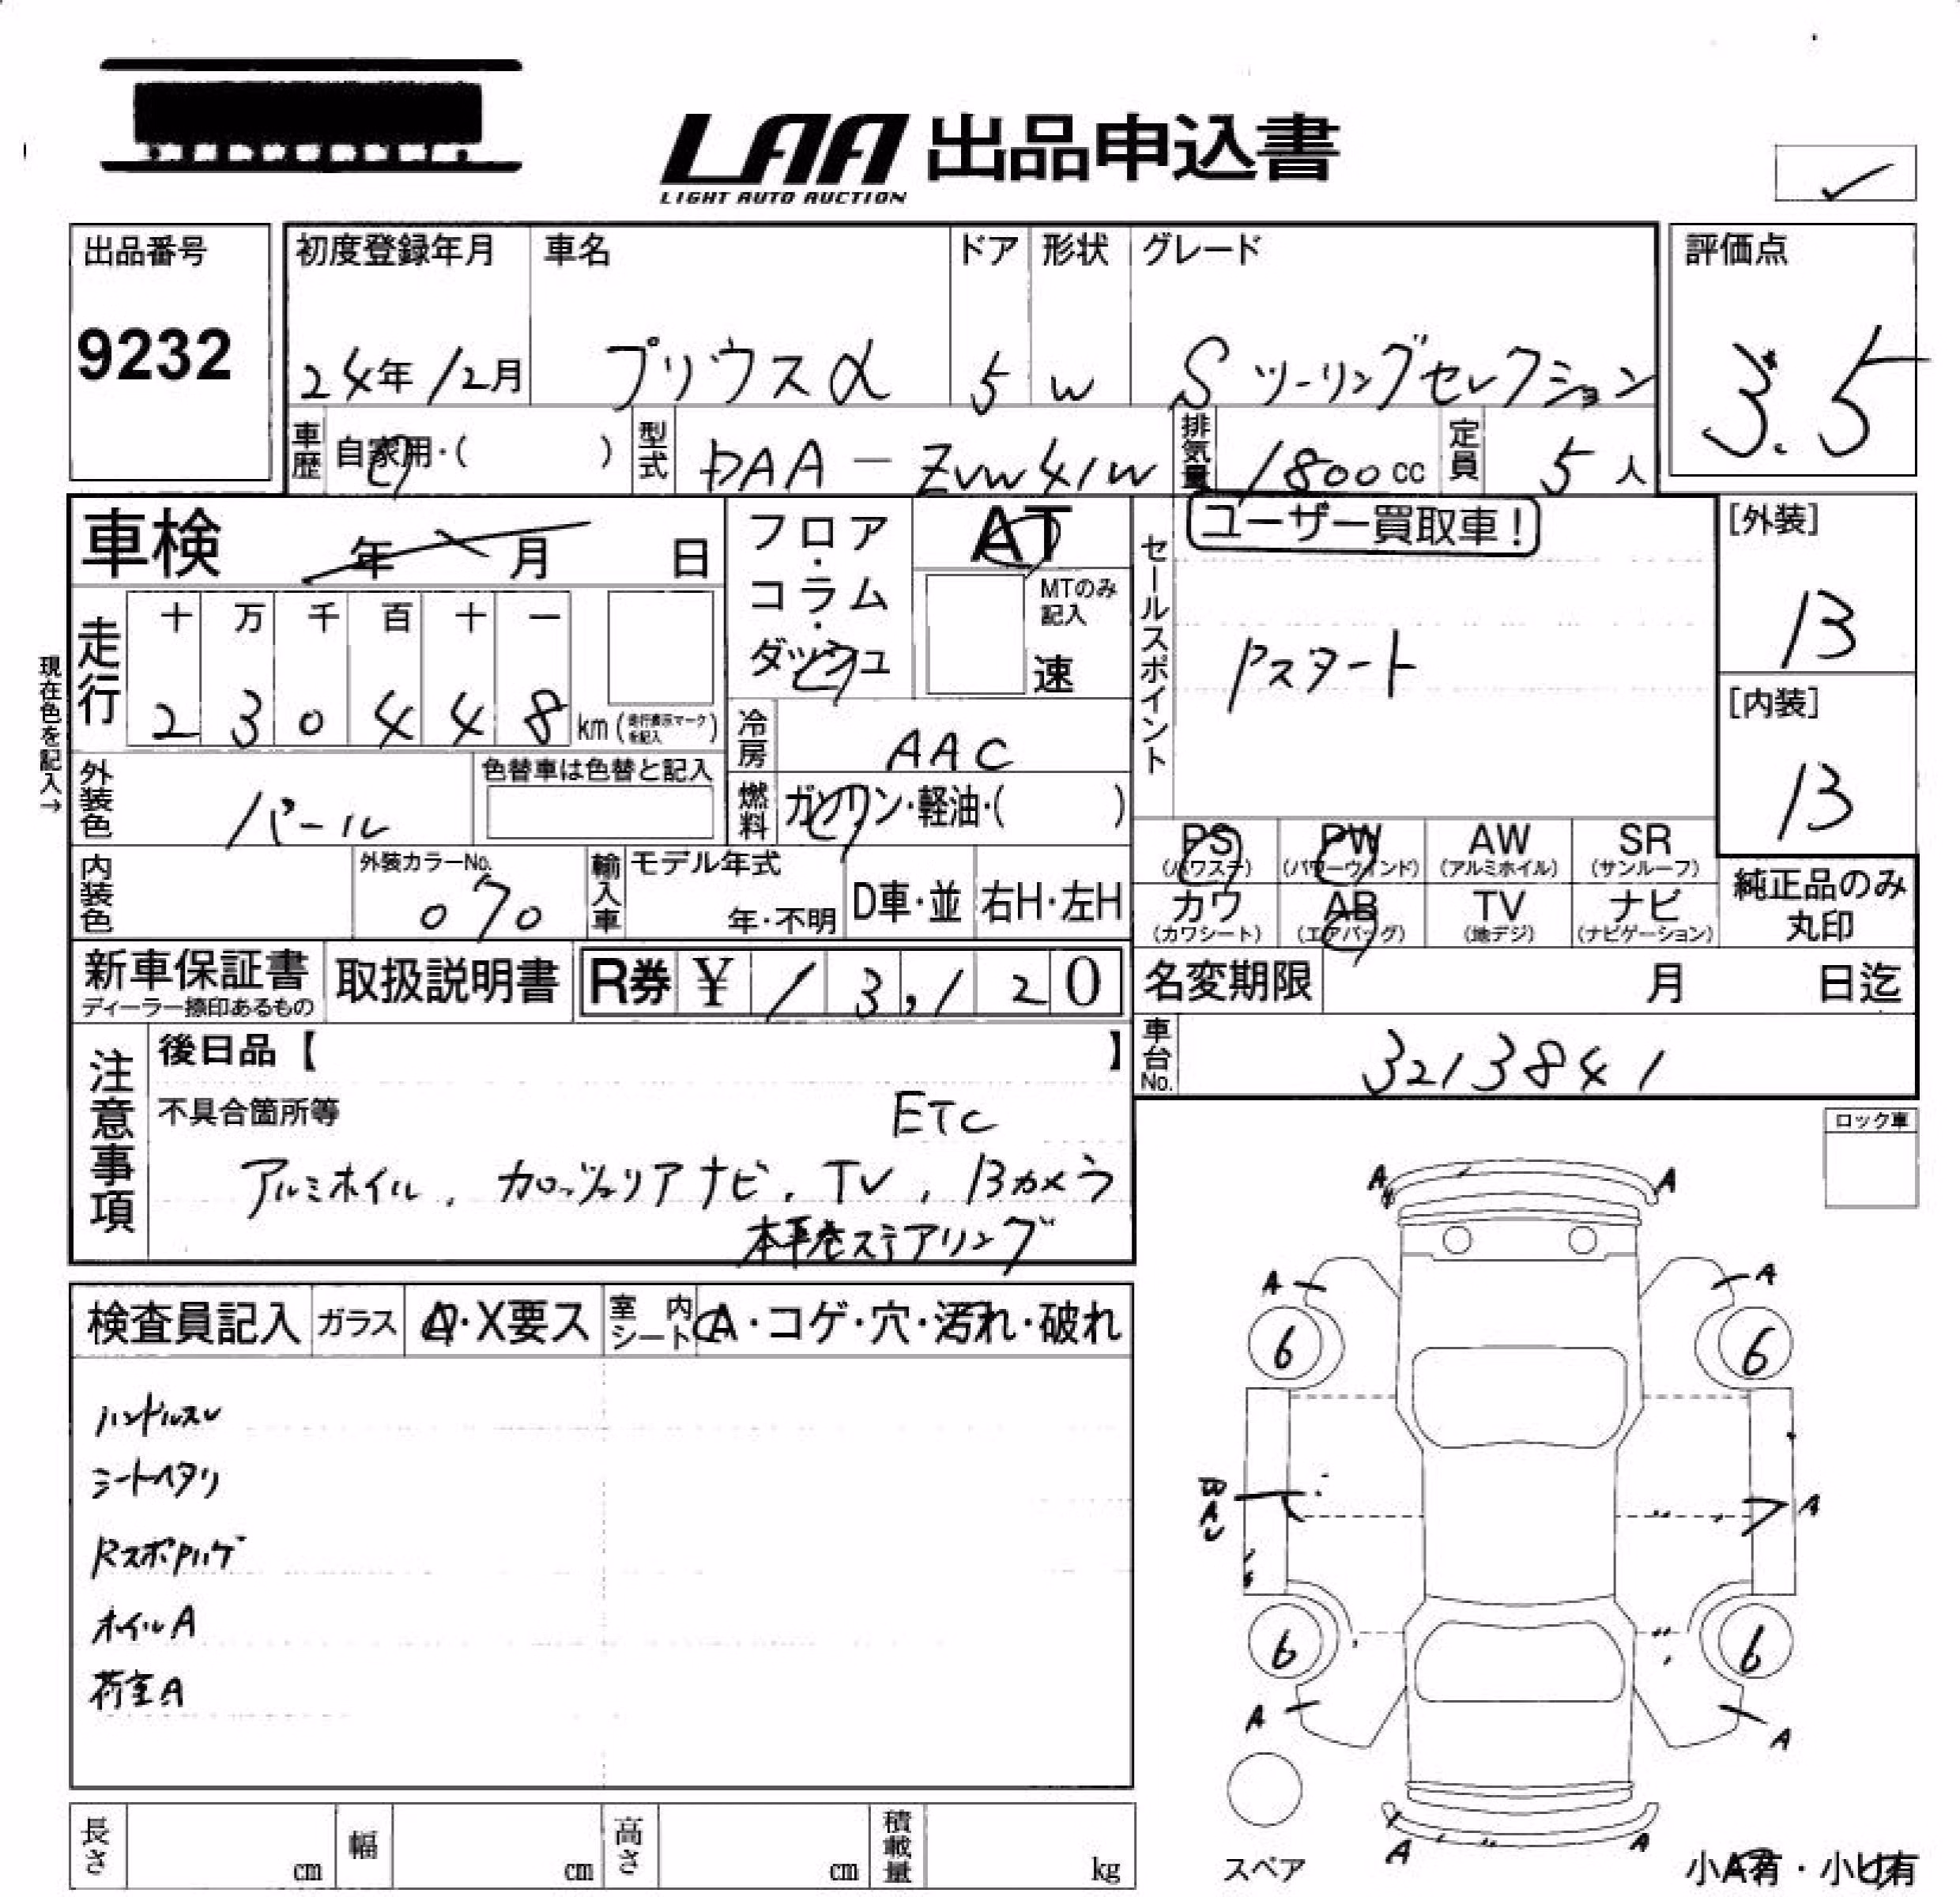 LAA 出品申込書
LIGHT AUTO AUCTION
出品番号
9232
初度登録年月
24年12月
車名
プリウスα
ドア
5
形状
W
グレード
Sツーリングセレクション
評価点
3.5
車歴 自家用・( )
型式 DAA-ZVW41W
排気量 1800cc
定員 5人
車検 年 月 日
フロア・コラム・ダッシュ
AT
MTのみ記入
速
セールスポイント
ユーザー買取車!
Pスタート
[外装]
B
[内装]
B
現在色を記入→
走行
十 万 千 百 十 一
2 3 0 4 4 8 km (走行表示マークを記入)
冷房 AAC
燃料 ガソリン・軽油・( )
外装色 パール
色替車は色替と記入
内装色
外装カラーNo.
070
輸入車 モデル年式
年・不明
D車・並
右H・左H
PS (パワステ)
PW (パワーウインド)
AW (アルミホイル)
SR (サンルーフ)
カワ (カワシート)
AB (エアバッグ)
TV (地デジ)
ナビ (ナビゲーション)
純正品のみ
丸印
新車保証書
ディーラー捺印あるもの
取扱説明書
R券 ¥ 13,120
名変期限 月 日迄
車台No. 3213841
注意事項
後日品【 】
不具合箇所等
ETC
アルミホイル、カロッツェリアナビ、TV、Bカメラ
本革巻ステアリング
ロック車
検査員記入 ガラス A・X要ス 室内シート A・コゲ・穴・汚れ・破れ
ハンドルスレ
シートヘタリ
RスポPハゲ
ホイルA
荷室A
A A
A A
6 6
A
6 6
A A
A A
スペア
小A有・小U有
長さ cm
幅 cm
高さ cm
積載量 kg